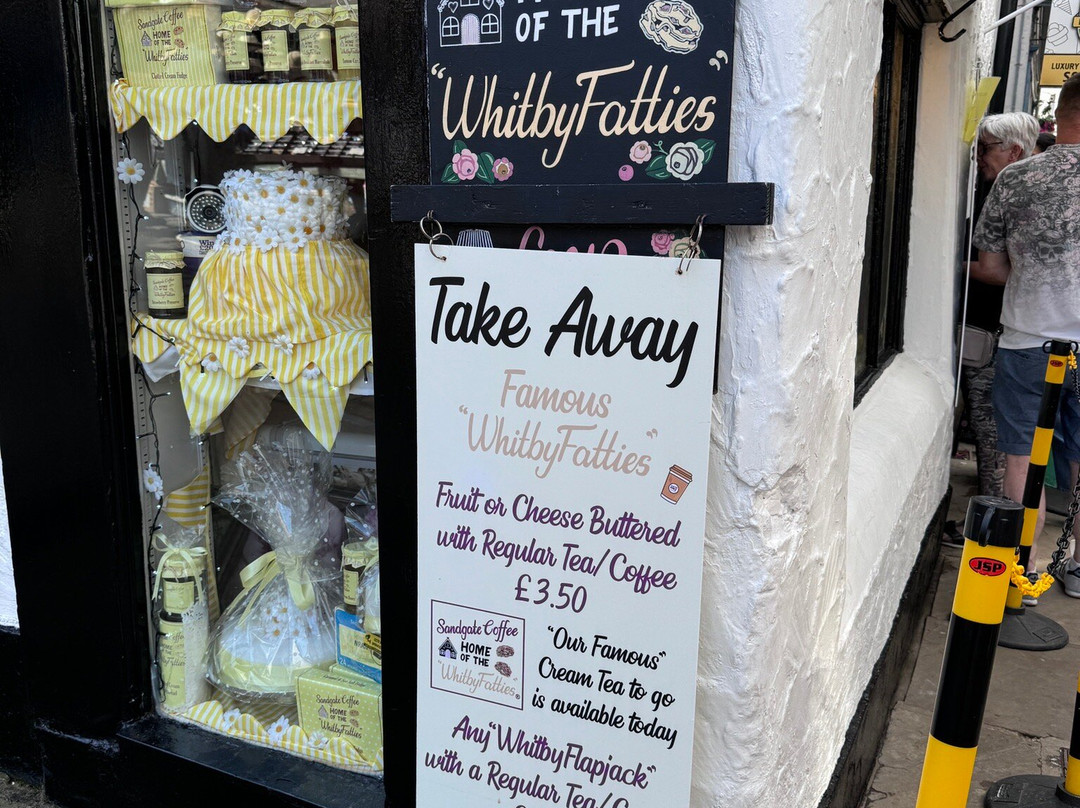 OF THE
"WhitbyFatties"
Take Away
Famous
"WhitbyFatties"
Fruit or Cheese Buttered
with Regular Tea/Coffee
£3.50
Sandgate Coffee
HOME
OF THE
"WhitbyFatties"®
"Our Famous"
Cream Tea to go
is available today
Any "WhitbyFlapjack"
with a Regular Tea/
Sandgate Coffee
HOME
OF THE
"WhitbyFatties"
Sandgate Coffee
HOME
OF THE
WhitbyFatties
JSP
LUXURY